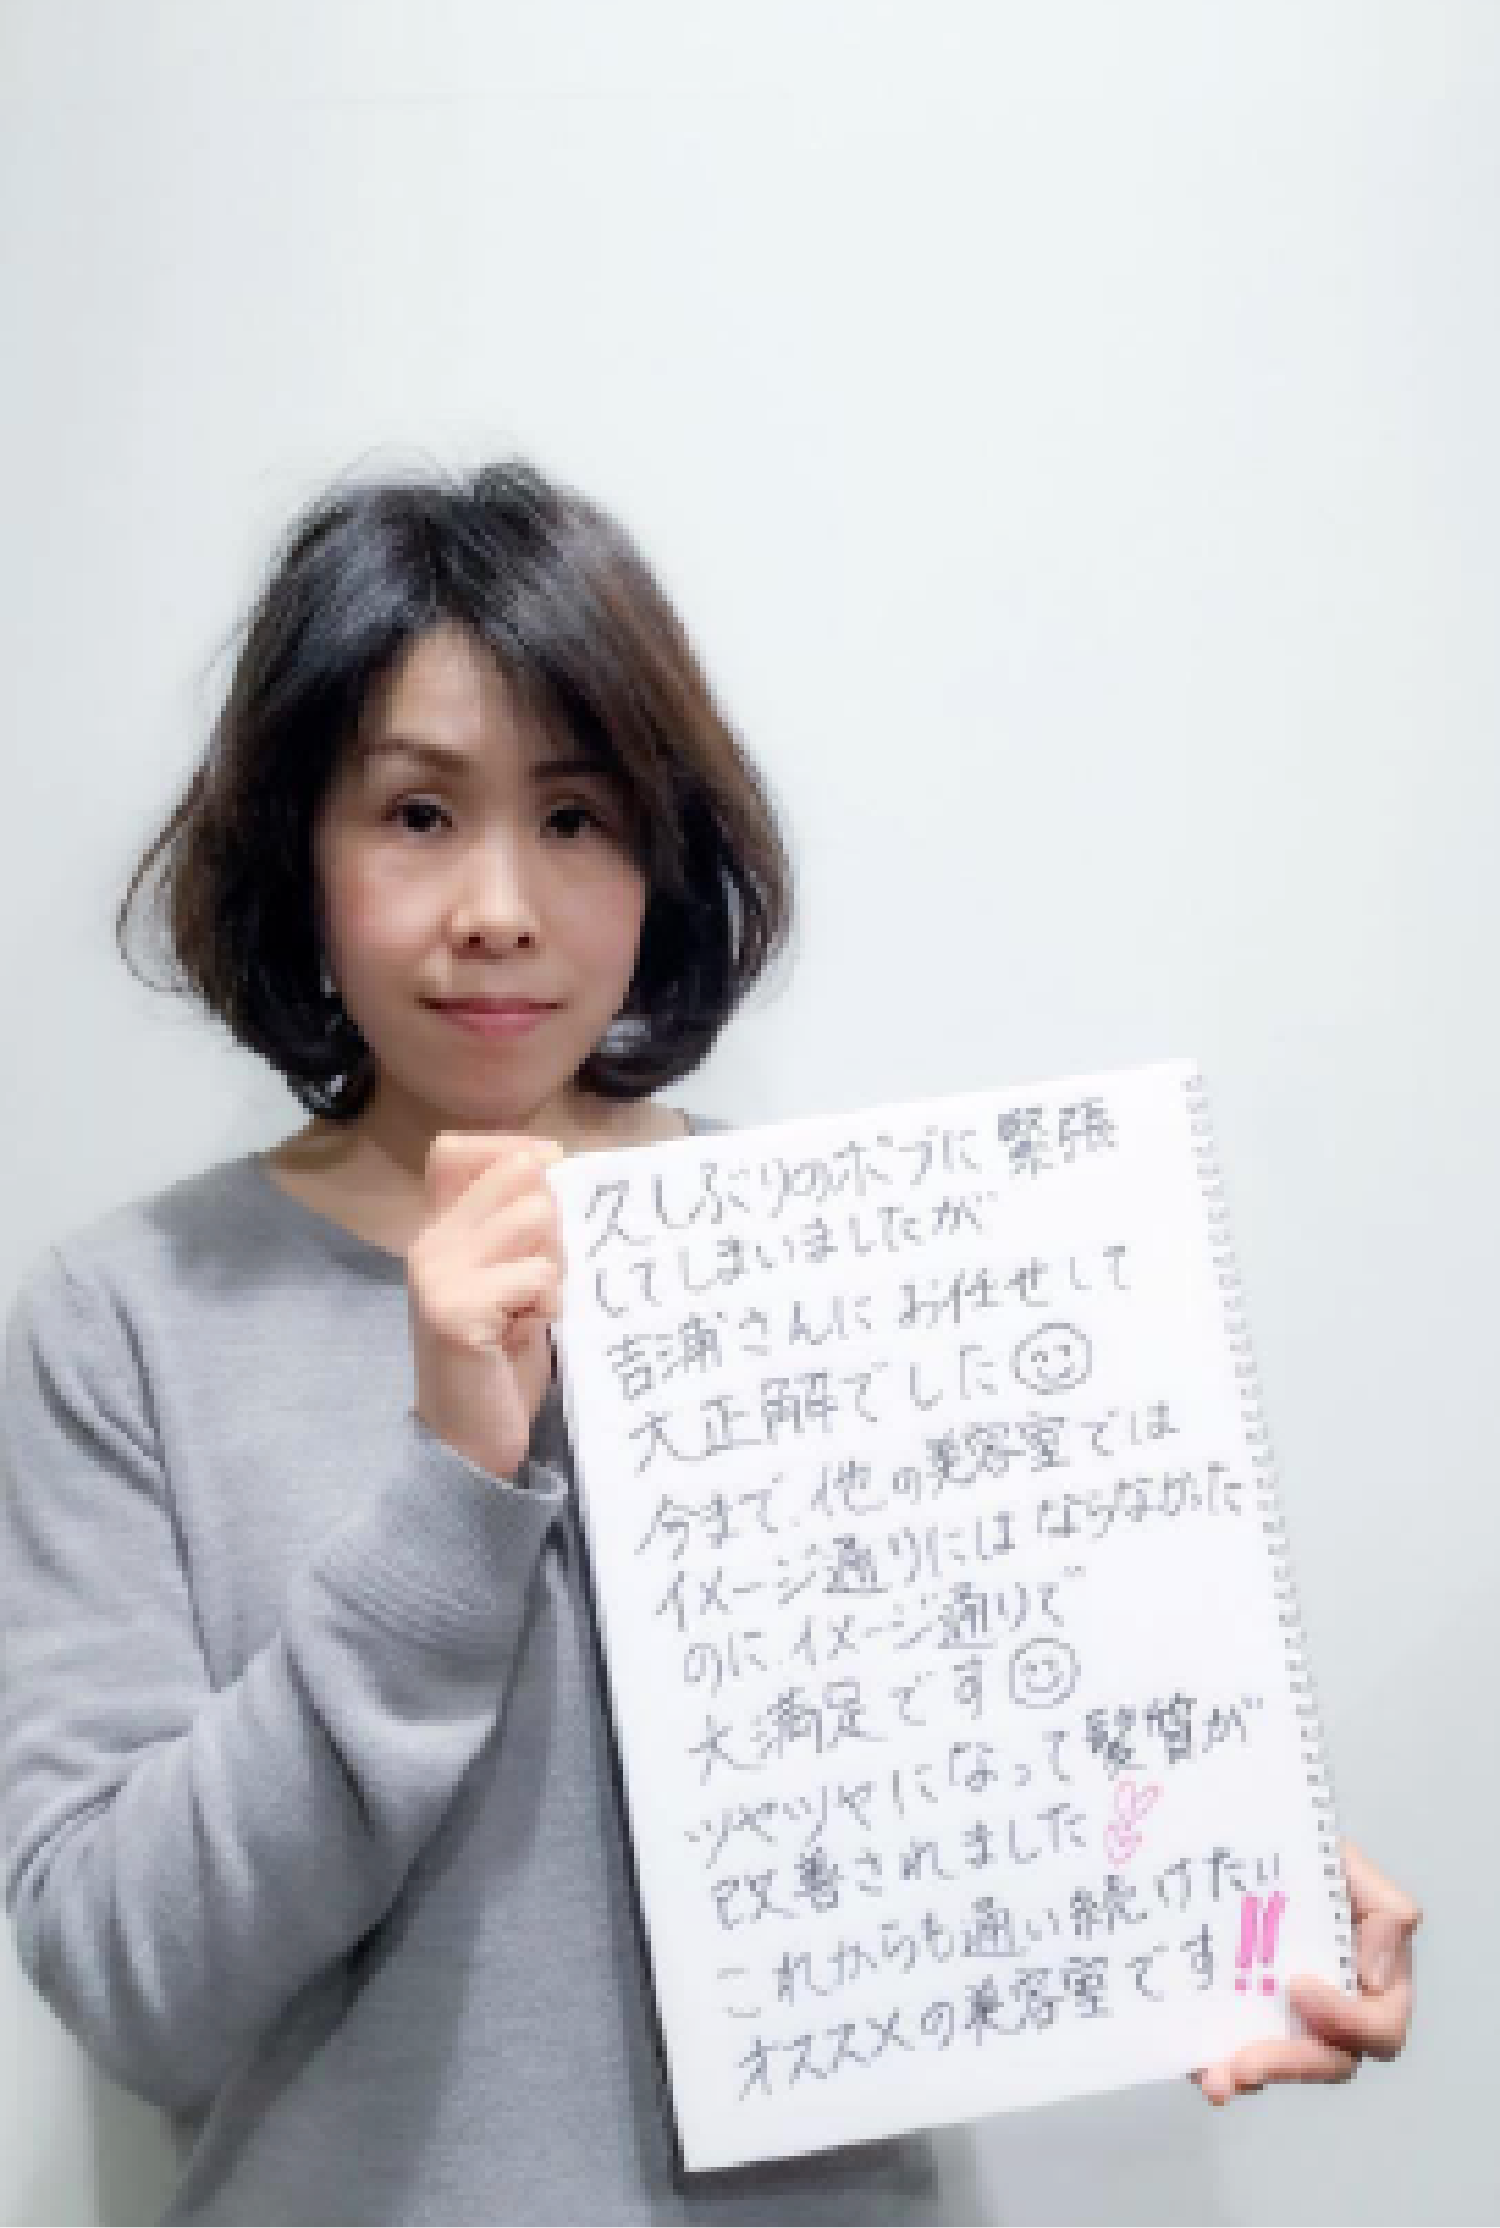 久しぶりのボブに緊張
してしまいましたが
吉浦さんにお任せして
大正解でした
今まで、他の美容室では
イメージ通りにはならなかった
のに、イメージ通りで
大満足です
ツヤツヤになって髪質が
改善されました
これからも通い続けたい
オススメの美容室です!!